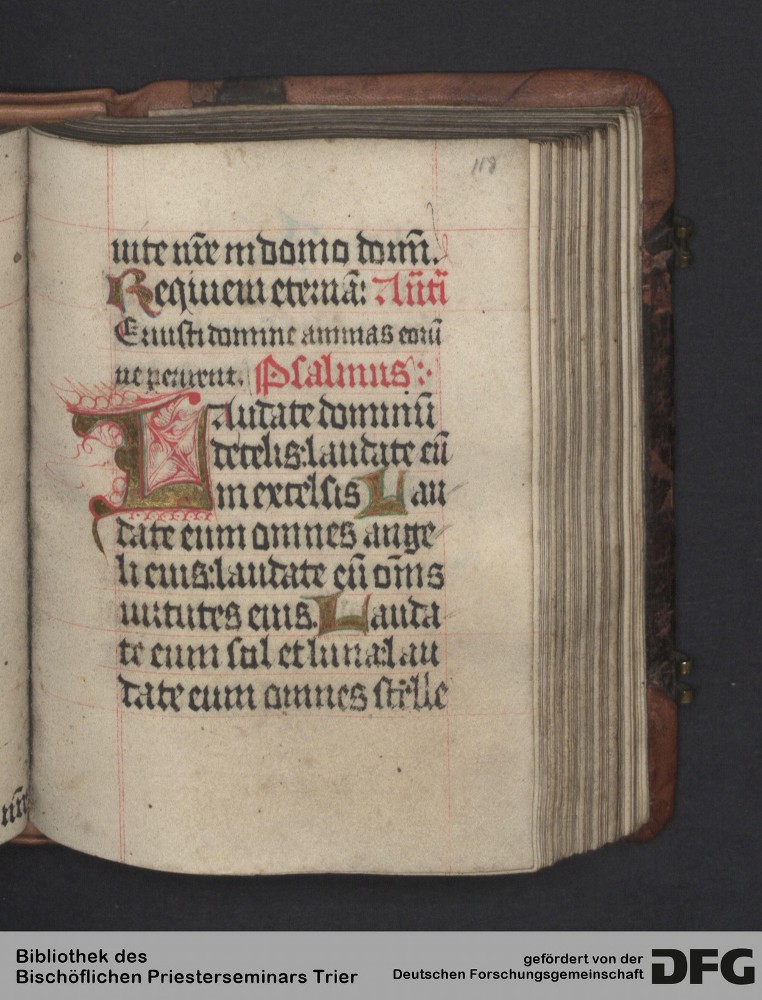 118
uite nr̄e in domo domī.
Requiem eternā: Antī
Eruisti domine animas eorū
ne perirent. Psalmus:
Laudate dominū
de celis: laudate eū
in excelsis Lau
date eum omnes ange
li eius: laudate eū om̄s
uirtutes eius. Lauda
te eum sol et luna: lau
date eum omnes stelle
Bibliothek des
Bischöflichen Priesterseminars Trier
gefördert von der
Deutschen Forschungsgemeinschaft
DFG